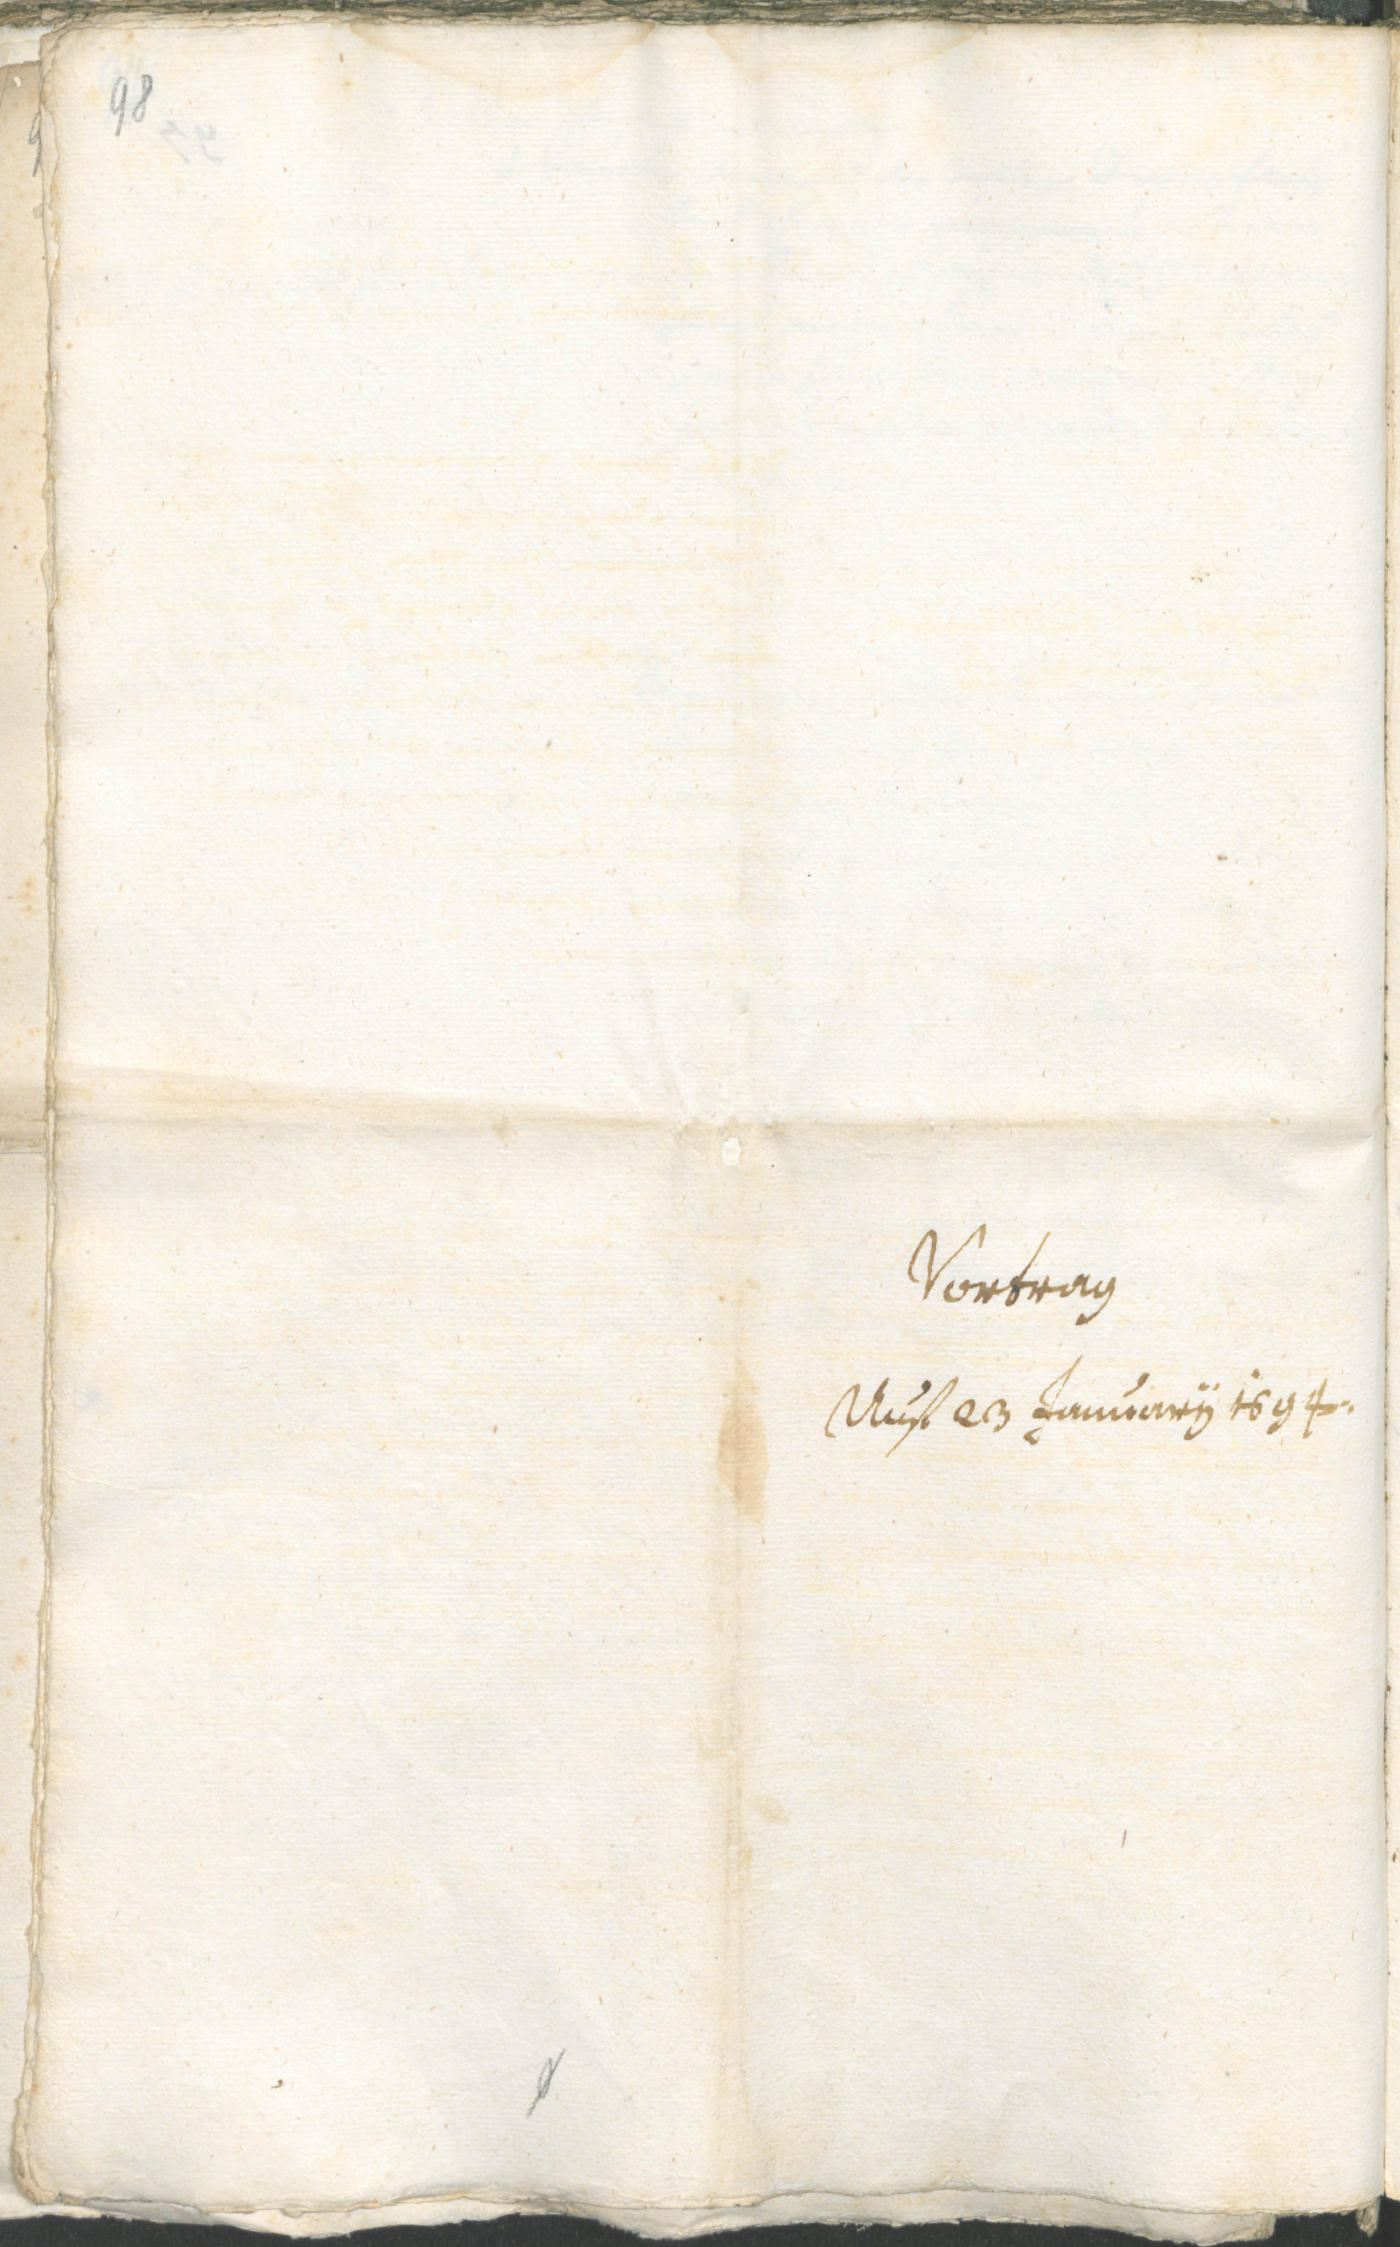 98
Vortrag
Auß 23 January 1694.